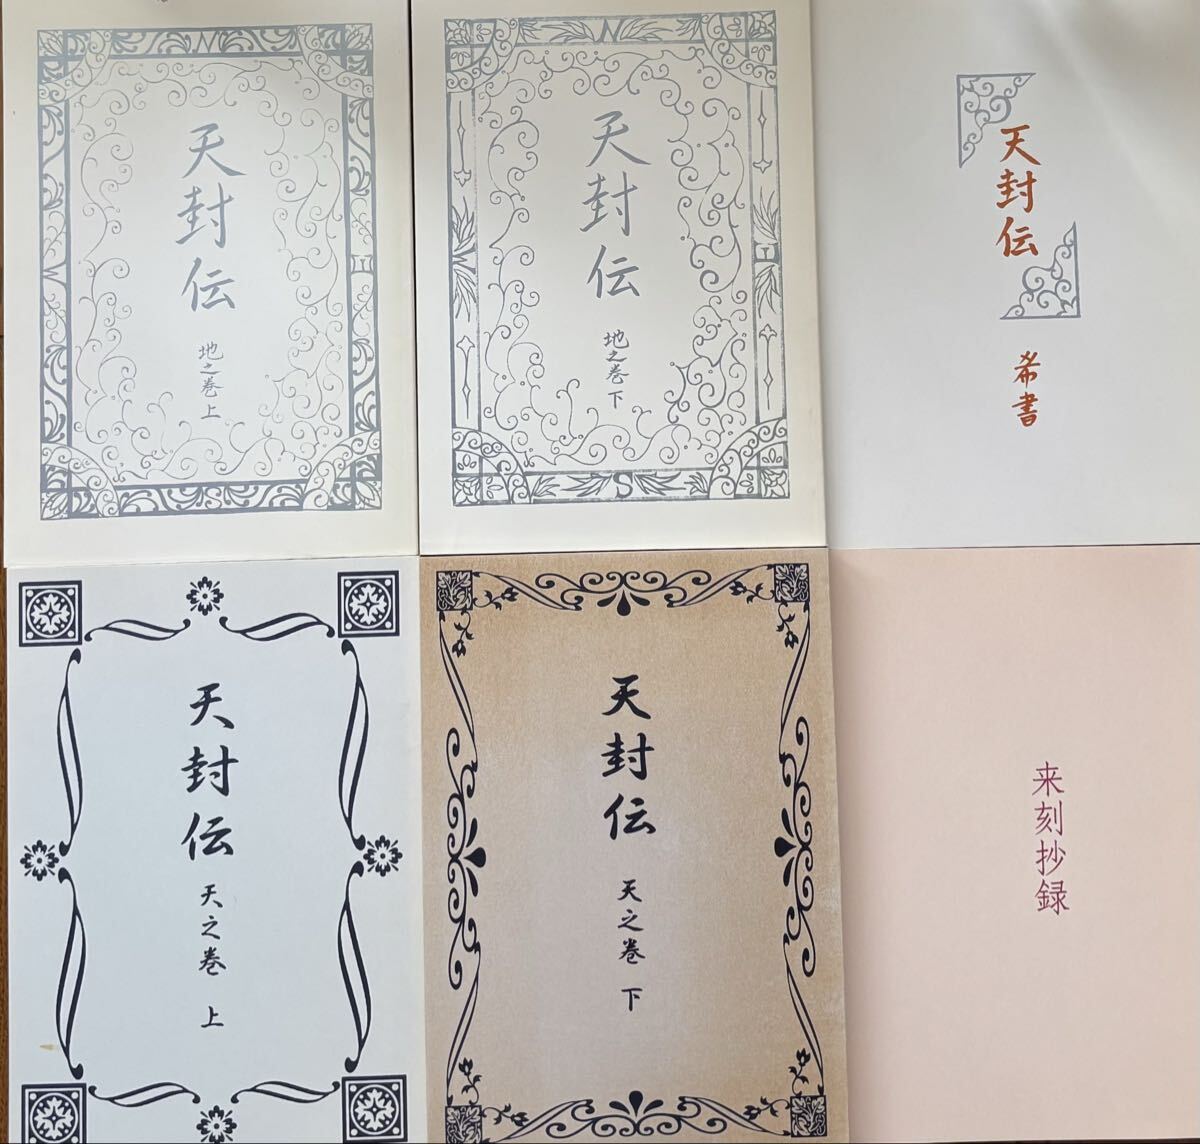 N
天封伝
地之巻 上
W
I
N
天封伝
地之巻 下
I
S
天封伝
希書
天封伝
天之巻 上
天封伝
天之巻 下
来刻抄録